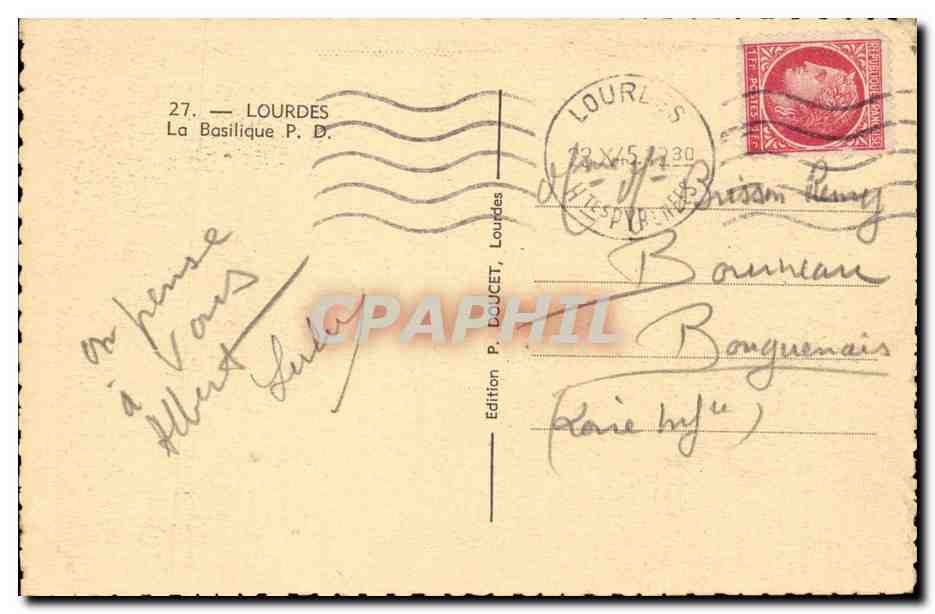 27. — LOURDES
La Basilique P. D.
on pense
à Vous
Albert
Edition P. DOUCET, Lourdes
LOURDES
12 30
HTES PYRENEES
REPUBLIQUE FRANÇAISE
1 Fr POSTES 1 Fr
Buisson Remy
Bouguenais
(Loire Infre)
CPAPHIL